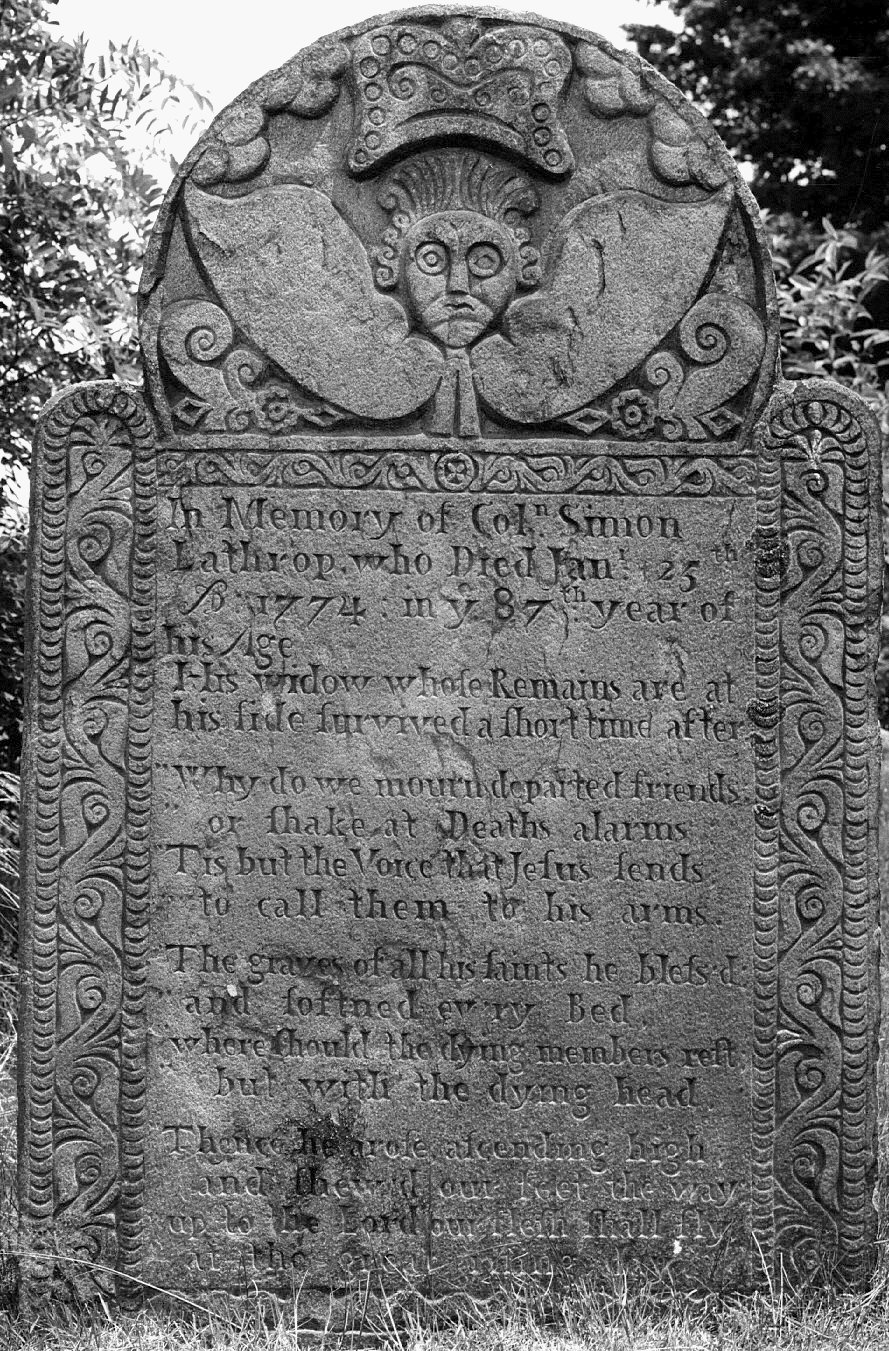 In Memory of Colⁿ. Simon
Lathrop. who Died Janʳ. 25ᵗʰ
AD. 1774 : in yᵉ 87ᵗʰ year of
his Age
His widow whoſe Remains are at
his ſide ſurvived a ſhort time after
"Why do we mourn departed friends
" or ſhake at Deaths alarms
"Tis but the Voice that Jeſus ſends
" to call them to his arms.
"The graves of all his ſaints he bleſs'd
" and ſoftned ev'ry Bed
"where ſhould the dying members reſt
but with the dying head
"Thence he aroſe aſcending high
and ſhew'd our feet the way
up to the Lord our fleſh ſhall fly
at the great riſing day